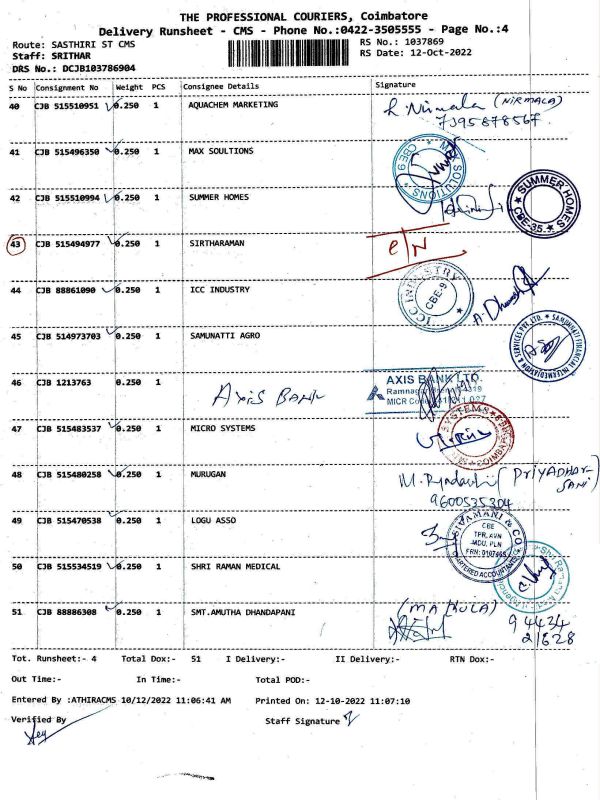 THE PROFESSIONAL COURIERS, Coimbatore
Delivery Runsheet - CMS - Phone No.:0422-3505555 - Page No.:4
Route: SASTHIRI ST CMS RS No.: 1037869
Staff: SRITHAR RS Date: 12-Oct-2022
DRS No.: DCJB103786904
S No Consignment No Weight PCS Consignee Details Signature
40 CJB 515510951 0.250 1 AQUACHEM MARKETING R. Nirmala (NIRMALA)
7395878567
41 CJB 515496350 0.250 1 MAX SOULTIONS MAX SOLUTIONS CBE 9
42 CJB 515510994 0.250 1 SUMMER HOMES SUMMER HOMES CBE-35.
43 CJB 515494977 0.250 1 SIRTHARAMAN
44 CJB 88861090 0.250 1 ICC INDUSTRY ICC INDUSTRY CBE-9
45 CJB 514973703 0.250 1 SAMUNATTI AGRO
46 CJB 1213763 0.250 1 AXIS BANK AXIS BANK LTD.
47 CJB 515483537 0.250 1 MICRO SYSTEMS
48 CJB 515480258 0.250 1 MURUGAN (PRIYADHARSANI)
9600535304
49 CJB 515470538 0.250 1 LOGU ASSO SIVAMANI & CO CBE TPR, AVN MDU, PLN CHARTERED ACCOUNTANTS
50 CJB 515534519 0.250 1 SHRI RAMAN MEDICAL
51 CJB 88886308 0.250 1 SMT.AMUTHA DHANDAPANI 94434
21628
Tot. Runsheet:- 4 Total Dox:- 51 I Delivery:- II Delivery:- RTN Dox:-
Out Time:- In Time:- Total POD:-
Entered By :ATHIRACMS 10/12/2022 11:06:41 AM Printed On: 12-10-2022 11:07:10
Verified By Staff Signature